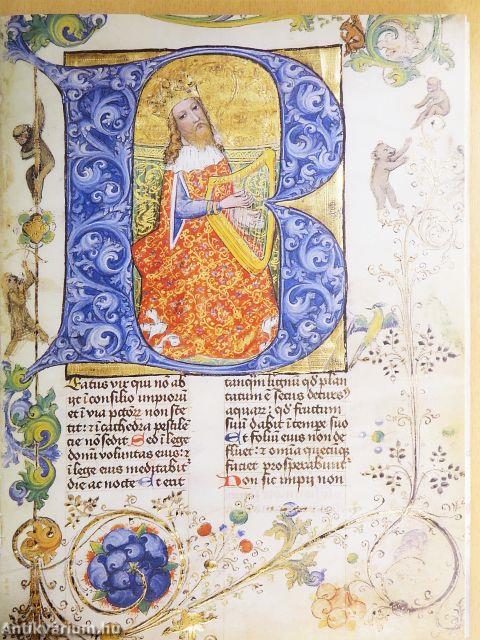 B
eatus vir qui nõ ab
ijt ĩ consilio impioru
et ĩ via pctõr non ste
tit: et ĩ cathedra pestile
tie nõ sedit Sed ĩ lege
domi voluntas eius: et
ĩ lege eius meditabit
die ac nocte Et erit
tanqm lignũ qd plan
tatum e secus decursus
aquar: qd fructum
suũ dabit ĩ tempe suo
Et foliũ eius non de
fluet: et omnia quecũqz
faciet prosperabunt
Non sic impij non
Antikvarium.hu